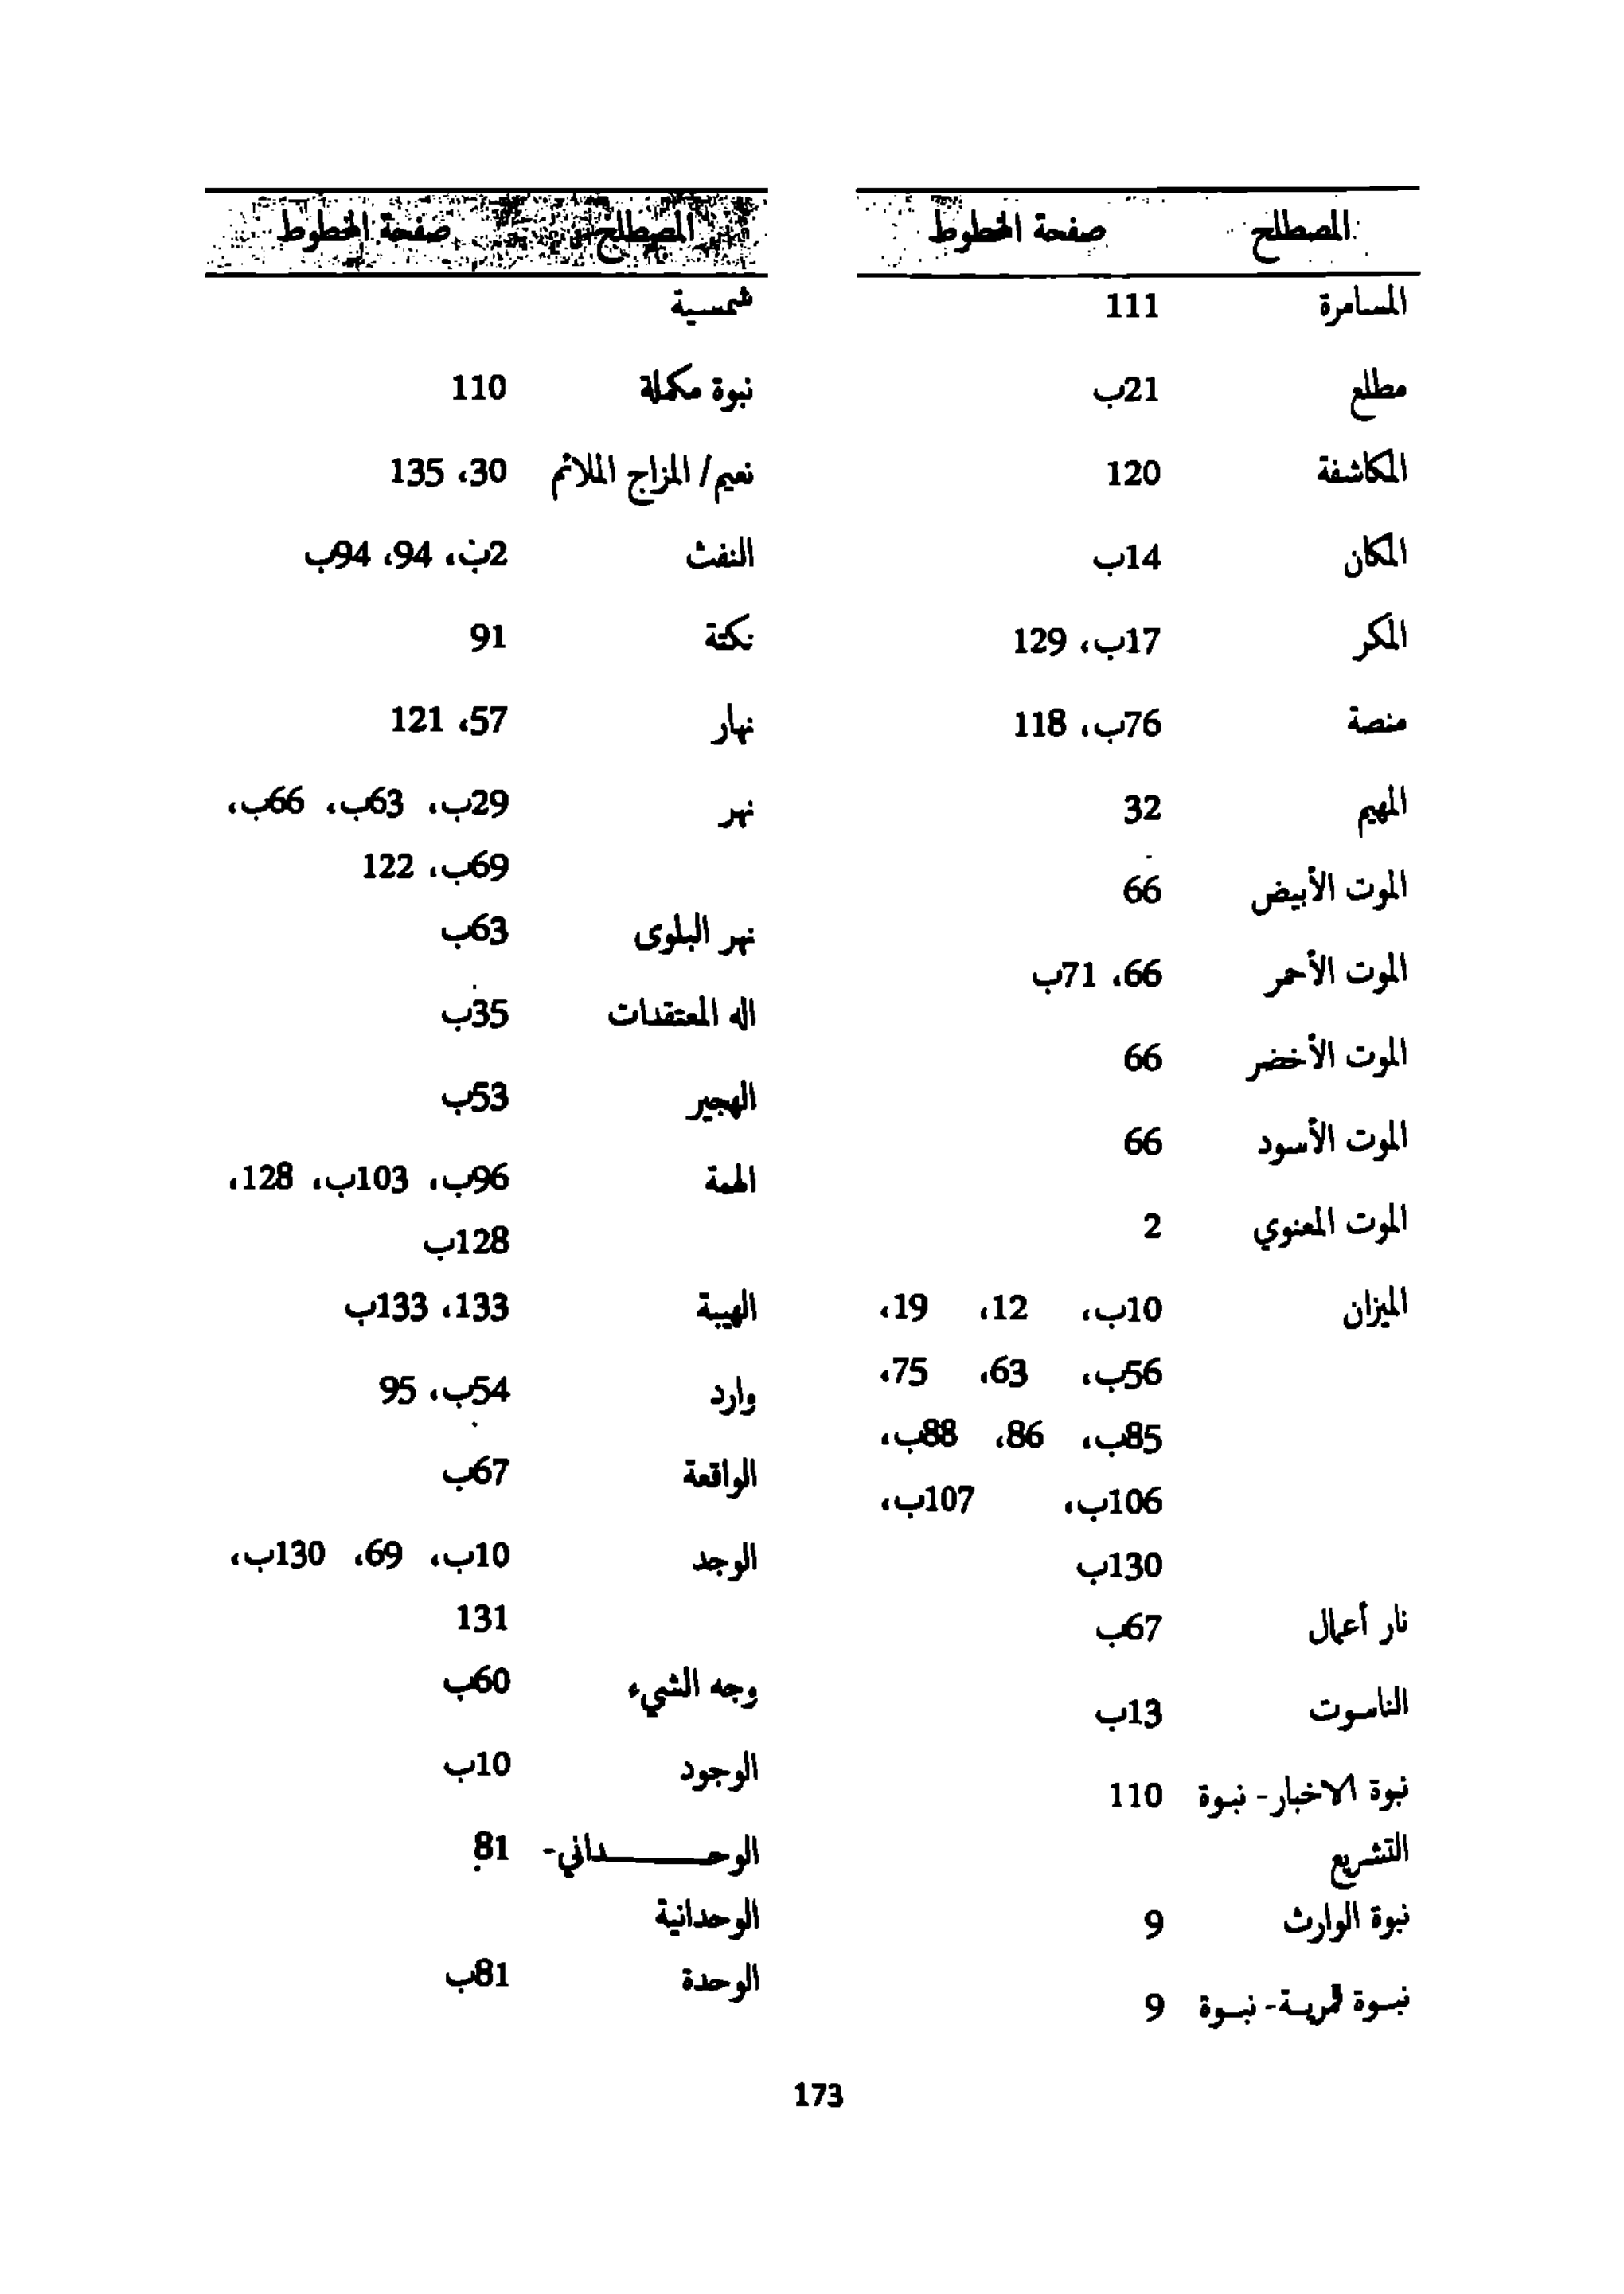 المصطلح صفحة المخطوط
المسامرة 111
مطلع 21ب
المكاشفة 120
المكان 14ب
المكر 17ب، 129
منصة 76ب، 118
المهيم 32
الموت الأبيض 66
الموت الأحمر 66، 71ب
الموت الأخضر 66
الموت الأسود 66
الموت المعنوي 2
الميزان 10ب، 12، 19،
56ب، 63، 75،
85ب، 86، 88ب،
106ب، 107ب،
130ب
نار أعمال 67ب
الناسوت 13ب
نبوة الاخبار- نبوة 110
التشريع
نبوة الوارث 9
نبوة قمرية- نبوة 9
المصطلح صفحة المخطوط
شمسية
نبوة مكملة 110
نعيم/ المزاج الملائم 30، 135
النفث 2ب، 94، 94ب
نكتة 91
نهار 57، 121
نهر 29ب، 63ب، 66ب،
69ب، 122
نهر البلوى 63ب
اله المعتقدات 35ب
الهجير 53ب
الهمة 96ب، 103ب، 128،
128ب
الهيبة 133، 133ب
وارد 54ب، 95
الواقعة 67ب
الوجد 10ب، 69، 130ب،
131
وجه الشيء 60ب
الوجود 10ب
الوحداني- 81
الوحدانية
الوحدة 81ب
173